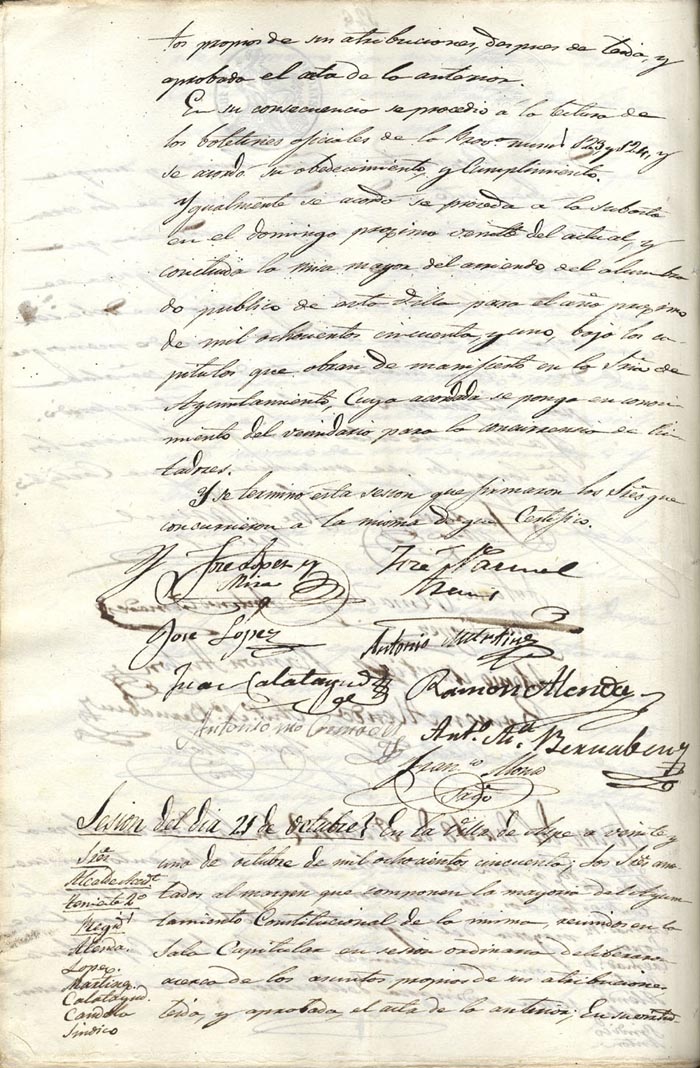 tos propios de sus atribuciones, despues de leida, y
aprobada el acta de la anterior.
En su consecuencia se procedio á la lectura de
los boletines oficiales de la Prov.ª num.s 123 y 124, y
se acordó su obedecimiento, y cumplimiento.
Ygualmente se acordó se proceda á la subasta
en el domingo proximo veinte del actual, y
concluida la misa mayor del arriendo del alumbra
do publico de esta Villa para el año proximo
de mil ochocientos cincuenta y uno, bajo los ca-
pitulos que obran de manifiesto en la Sria de
Ayuntamiento, Cuyo acordado se ponga en conoci
miento del vecindario para la concurrencia de lici
tadores.
Y se terminó esta sesion que firmaron los Sres que
concurrieron a la misma de que Certifico.
José Lopez y
Mira
José Manuel
José López
Antonio Martinez
Juan Calatayud
Ramon Alenda
Antonio
Ant.º M.ª Bernabeu
Sesion del dia 21 de octubre En la Villa de Aspe a veinte y
Sres
uno de octubre de mil ochocientos cincuenta; los Sres ano
Alcalde Acctl
tados al margen que componen la mayoria del Ayun
teniente 2º
tamiento Constitucional de la misma, reunidos en la
Regid.s
Sala Capitular en sesion ordinaria deliberaron
Alenda.
acerca de los asuntos propios de sus atribuciones
Lopez.
leida, y aprobada, el acta de la anterior, En su
Martinez
Calatayud
Candela
Sindico